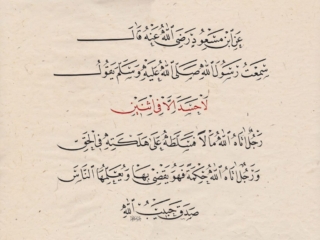 عَنِ ابْنِ مَسْعُودٍ رَضِيَ اللّٰهُ عَنْهُ قَالَ
سَمِعْتُ رَسُولَ اللّٰهِ صَلَّى اللّٰهُ عَلَيْهِ وَسَلَّمَ يَقُولُ
لَا حَسَدَ إِلَّا فِي اثْنَتَيْنِ
رَجُلٌ آتَاهُ اللّٰهُ مَالًا فَسَلَّطَهُ عَلَى هَلَكَتِهِ فِي الْحَقِّ
وَرَجُلٌ آتَاهُ اللّٰهُ حِكْمَةً فَهُوَ يَقْضِي بِهَا وَيُعَلِّمُهَا النَّاسَ
صَدَقَ حَبِيبُ اللّٰهِ